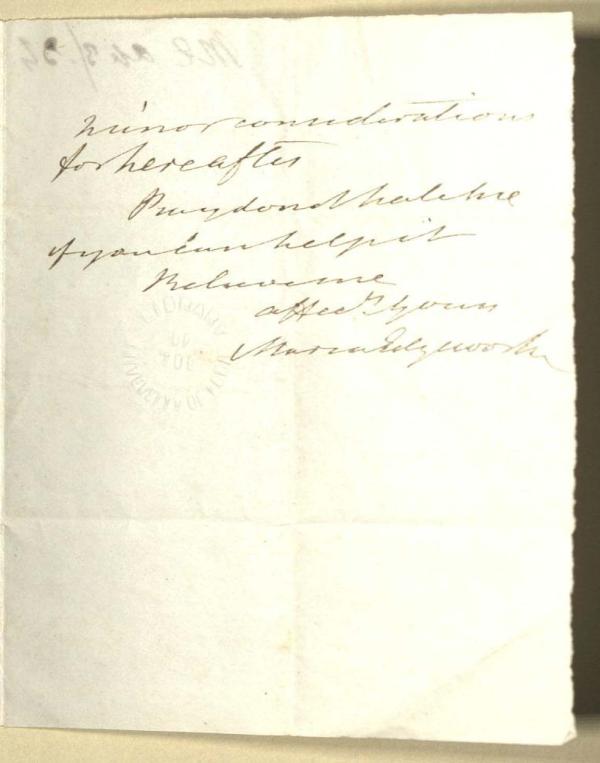 minor considerations
for hereafter
Pray do not hate me
if you can help it
Believe me
affecly yours
Maria Edgeworth